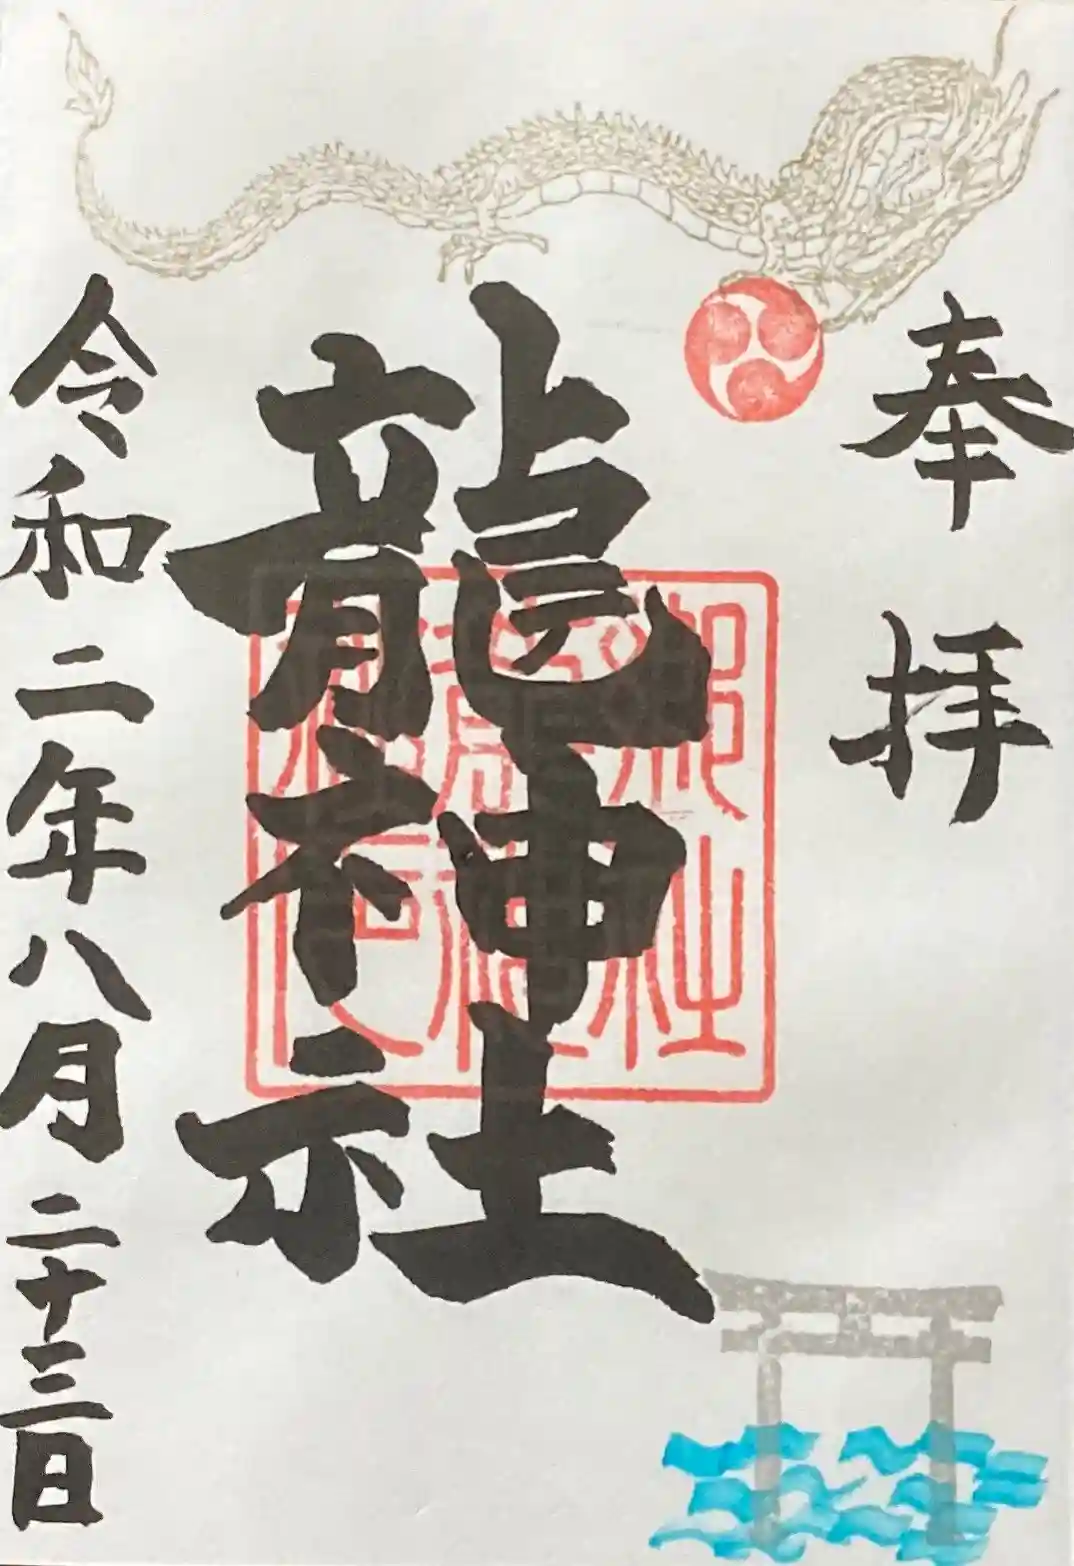 奉拝
龍神社
令和二年八月二十三日